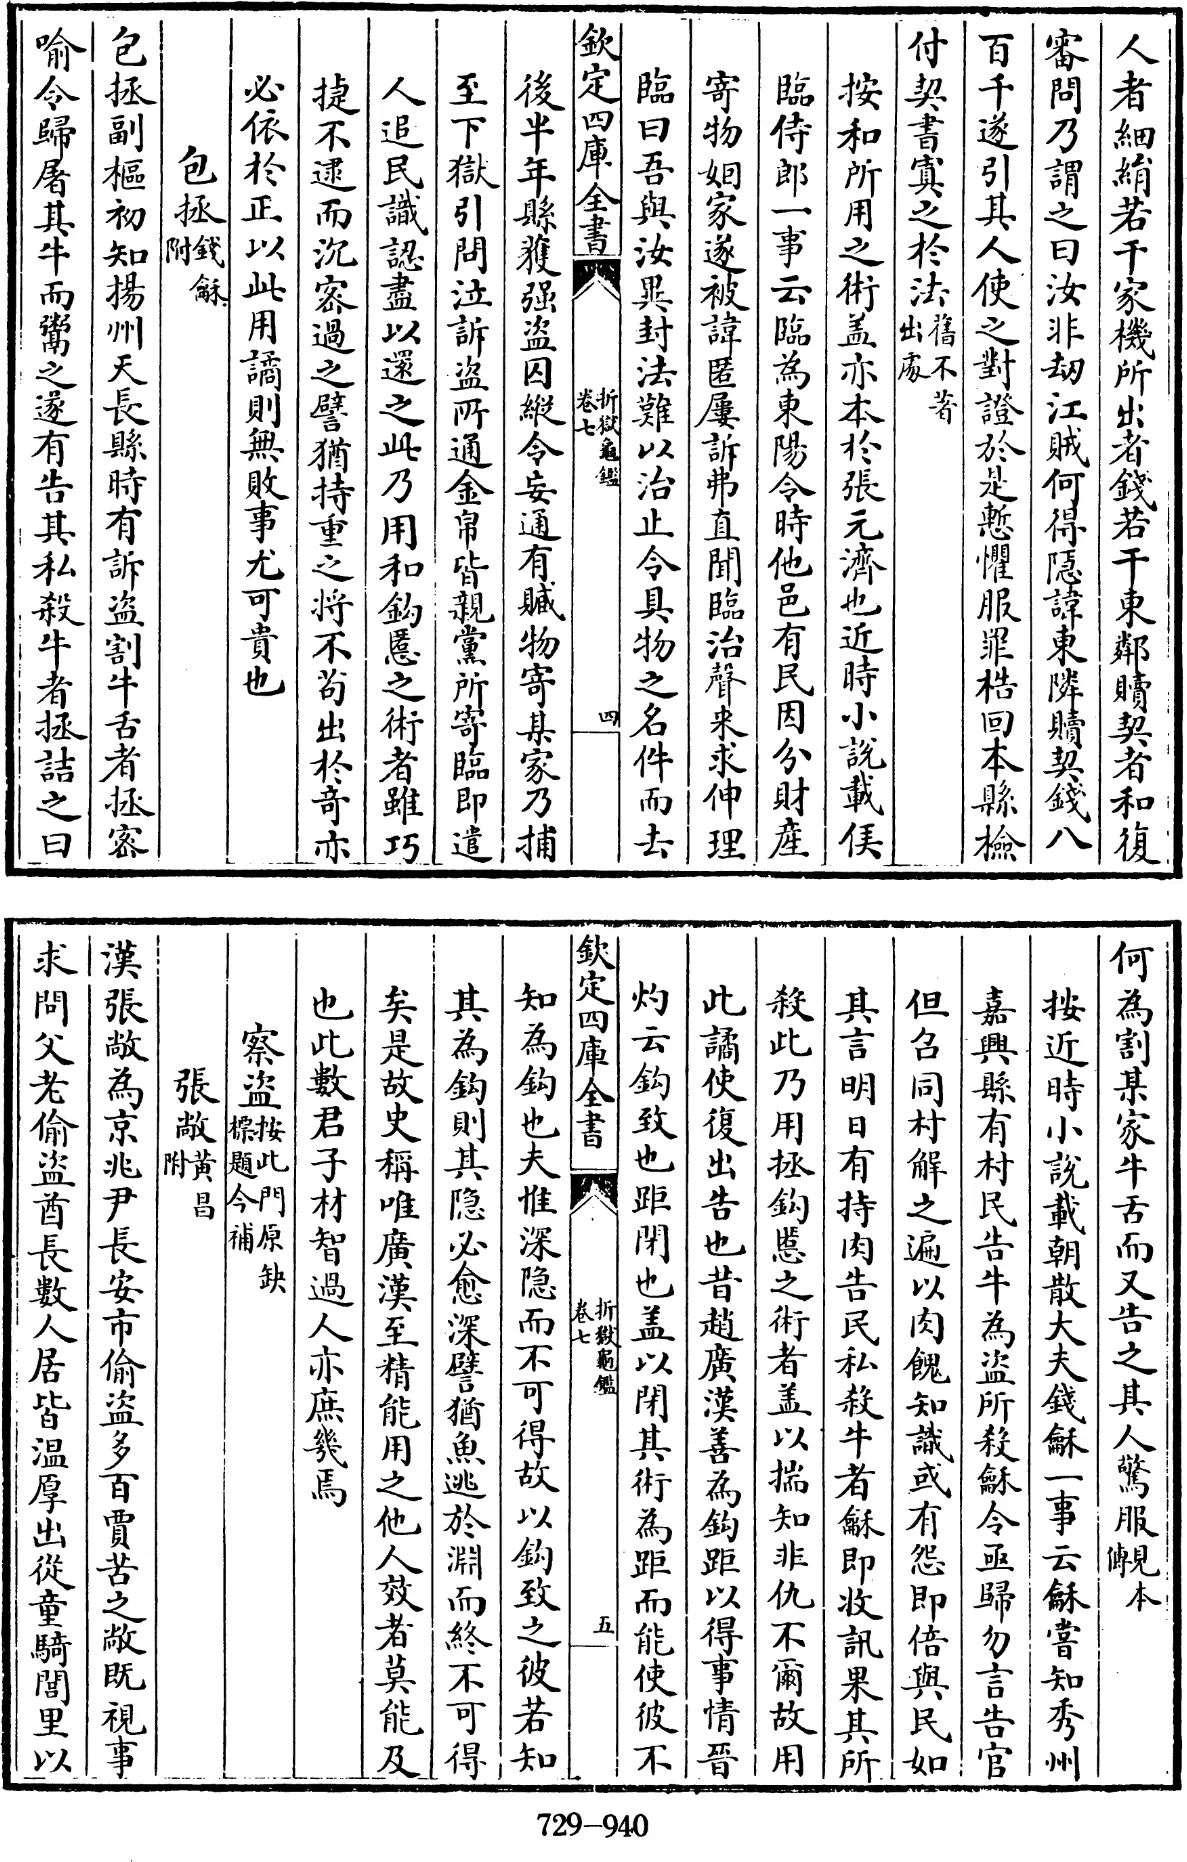 人者細絹若干家機所出者錢若干東鄰贖契者和復
審問乃謂之曰汝非刼江賊何得隱諱東隣贖契錢八
百千遂引其人使之對證於是慙懼服罪梏回本縣檢
付契書寘之於法舊不著出處
按和所用之術盖亦本於張元濟也近時小說載侯
臨侍郎一事云臨為東陽令時他邑有民因分財產
寄物姻家遂被諱匿屢訴弗直聞臨治聲来求伸理
臨曰吾與汝異封法難以治止令具物之名件而去
欽定四庫全書
折獄龜鑑
卷七
四
後半年縣獲强盜囚縱令妄通有贓物寄某家乃捕
至下獄引問泣訴盜所通金帛皆親黨所寄臨即遣
人追民識認盡以還之此乃用和鈎慝之術者雖巧
捷不逮而沉密過之譬猶持重之將不茍出於竒亦
必依於正以此用譎則無敗事尤可貴也
包拯錢龢附
包拯副樞初知揚州天長縣時有訴盜割牛舌者拯密
喻令歸屠其牛而鬻之遂有告其私殺牛者拯詰之曰
何為割某家牛舌而又告之其人驚服見本傳
按近時小說載朝散大夫錢龢一事云龢嘗知秀州
嘉興縣有村民告牛為盜所殺龢令亟歸勿言告官
但召同村解之遍以肉餽知識或有怨即倍與民如
其言明日有持肉告民私殺牛者龢即收訊果其所
殺此乃用拯鈎慝之術者盖以揣知非仇不爾故用
此譎使復出告也昔趙廣漢善為鈎距以得事情晉
灼云鈎致也距閉也盖以閉其術為距而能使彼不
欽定四庫全書
折獄龜鑑
卷七
五
知為鈎也夫惟深隐而不可得故以鈎致之彼若知
其為鈎則其隐必愈深譬猶魚逃於淵而終不可得
矣是故史稱唯廣漢至精能用之他人效者莫能及
也此數君子材智過人亦庶幾焉
察盜按此門原缺標題今補
張敞黃昌附
漢張敞為京兆尹長安市偷盜多百賈苦之敞既視事
求問父老偷盜酋長數人居皆温厚出從童騎閭里以
729–940